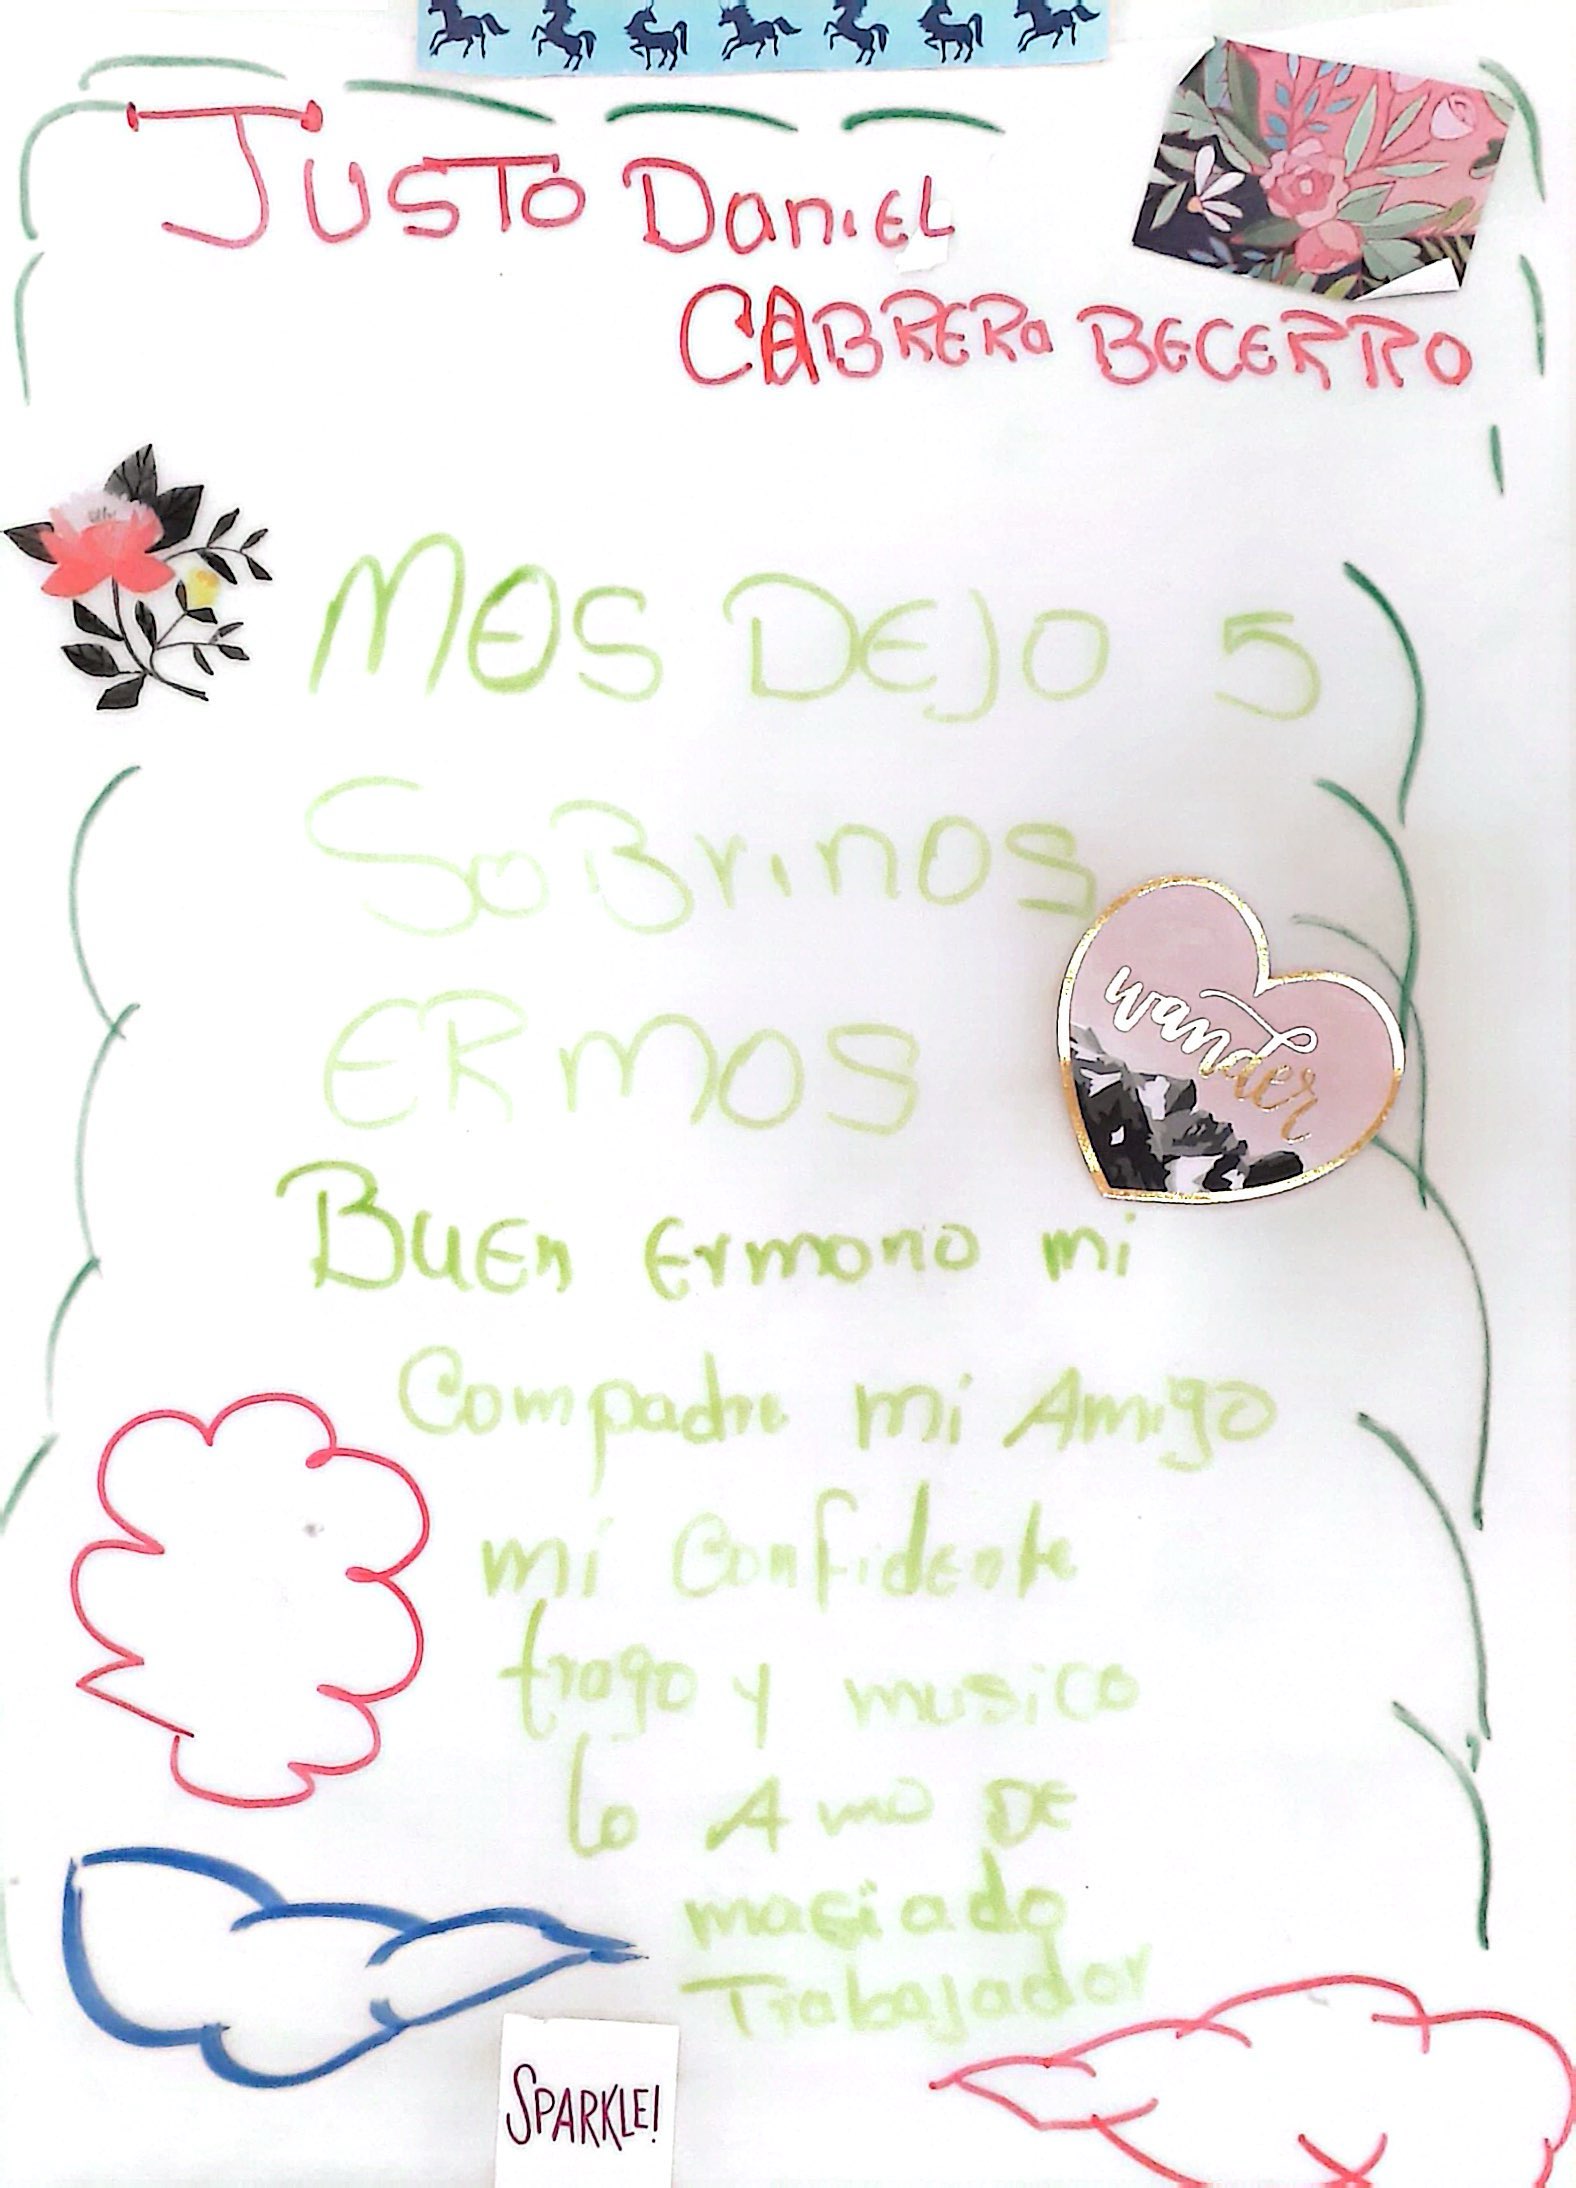 JUSTO DaniEL
CABRERa BECERRO
MOS DEJO 5
SoBrinOS
wander
ERMOS
BuEn Ermono mi
Compadre mi Amigo
mi Confidente
trago y musico
lo Amo DE
masiado
Trabajador
SPARKLE!